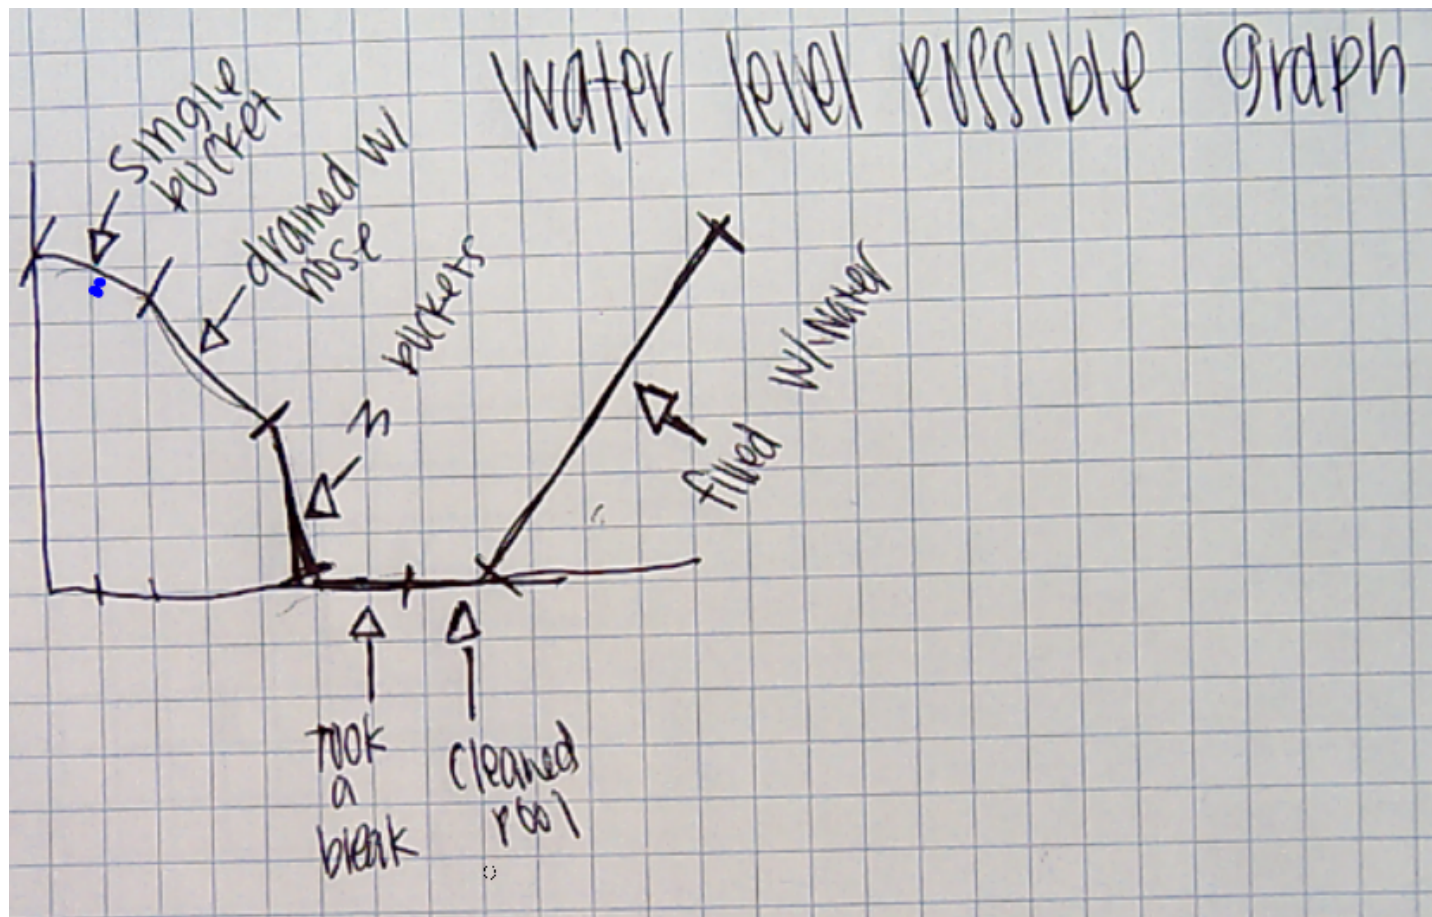 Water level possible graph
single
bucket
drained w/
hose
buckets
filled w/water
took
a
break
cleaned
pool